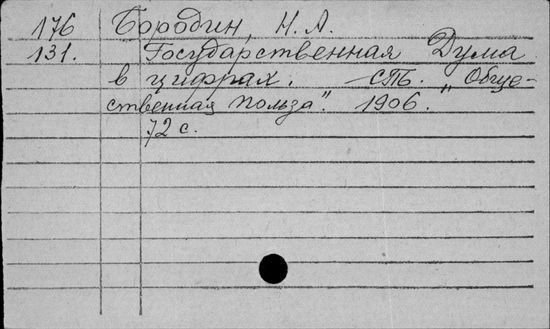 176 Бородин, Н. А.
131. Государственная Дума
в цифрах. — СПб. „Обще-
ственная польза". 1906.
72 с.